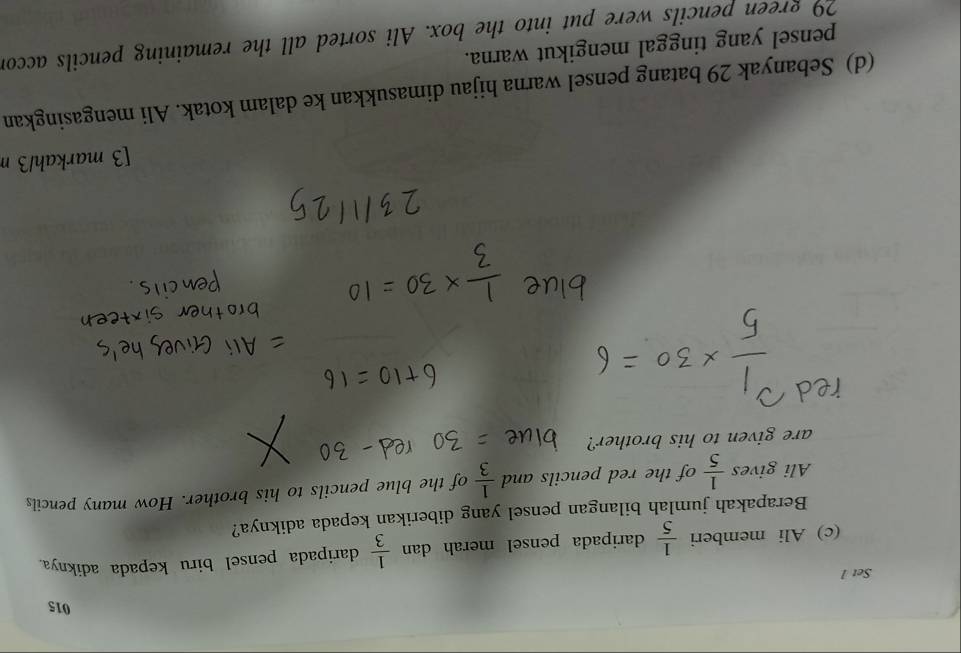 015
Set 1
(c) Ali memberi 1/5 daripada pensel merah dan 1/3 daripada pensel biru kepada adiknya.
Berapakah jumlah bilangan pensel yang diberikan kepada adiknya?
Ali gives 1/5 of the red pencils and 1/3 of the blue pencils to his brother. How many pencils
are given to his brother?
blue = 30 red - 30 X
red
1/5 × 30 = 6
6+10 = 16
= Ali Gives he's
brother sixteen
pencils.
blue 1/3 × 30 = 10
23/11/25
[3 markah/3 m
(d) Sebanyak 29 batang pensel warna hijau dimasukkan ke dalam kotak. Ali mengasingkan
pensel yang tinggal mengikut warna.
29 green pencils were put into the box. Ali sorted all the remaining pencils accor